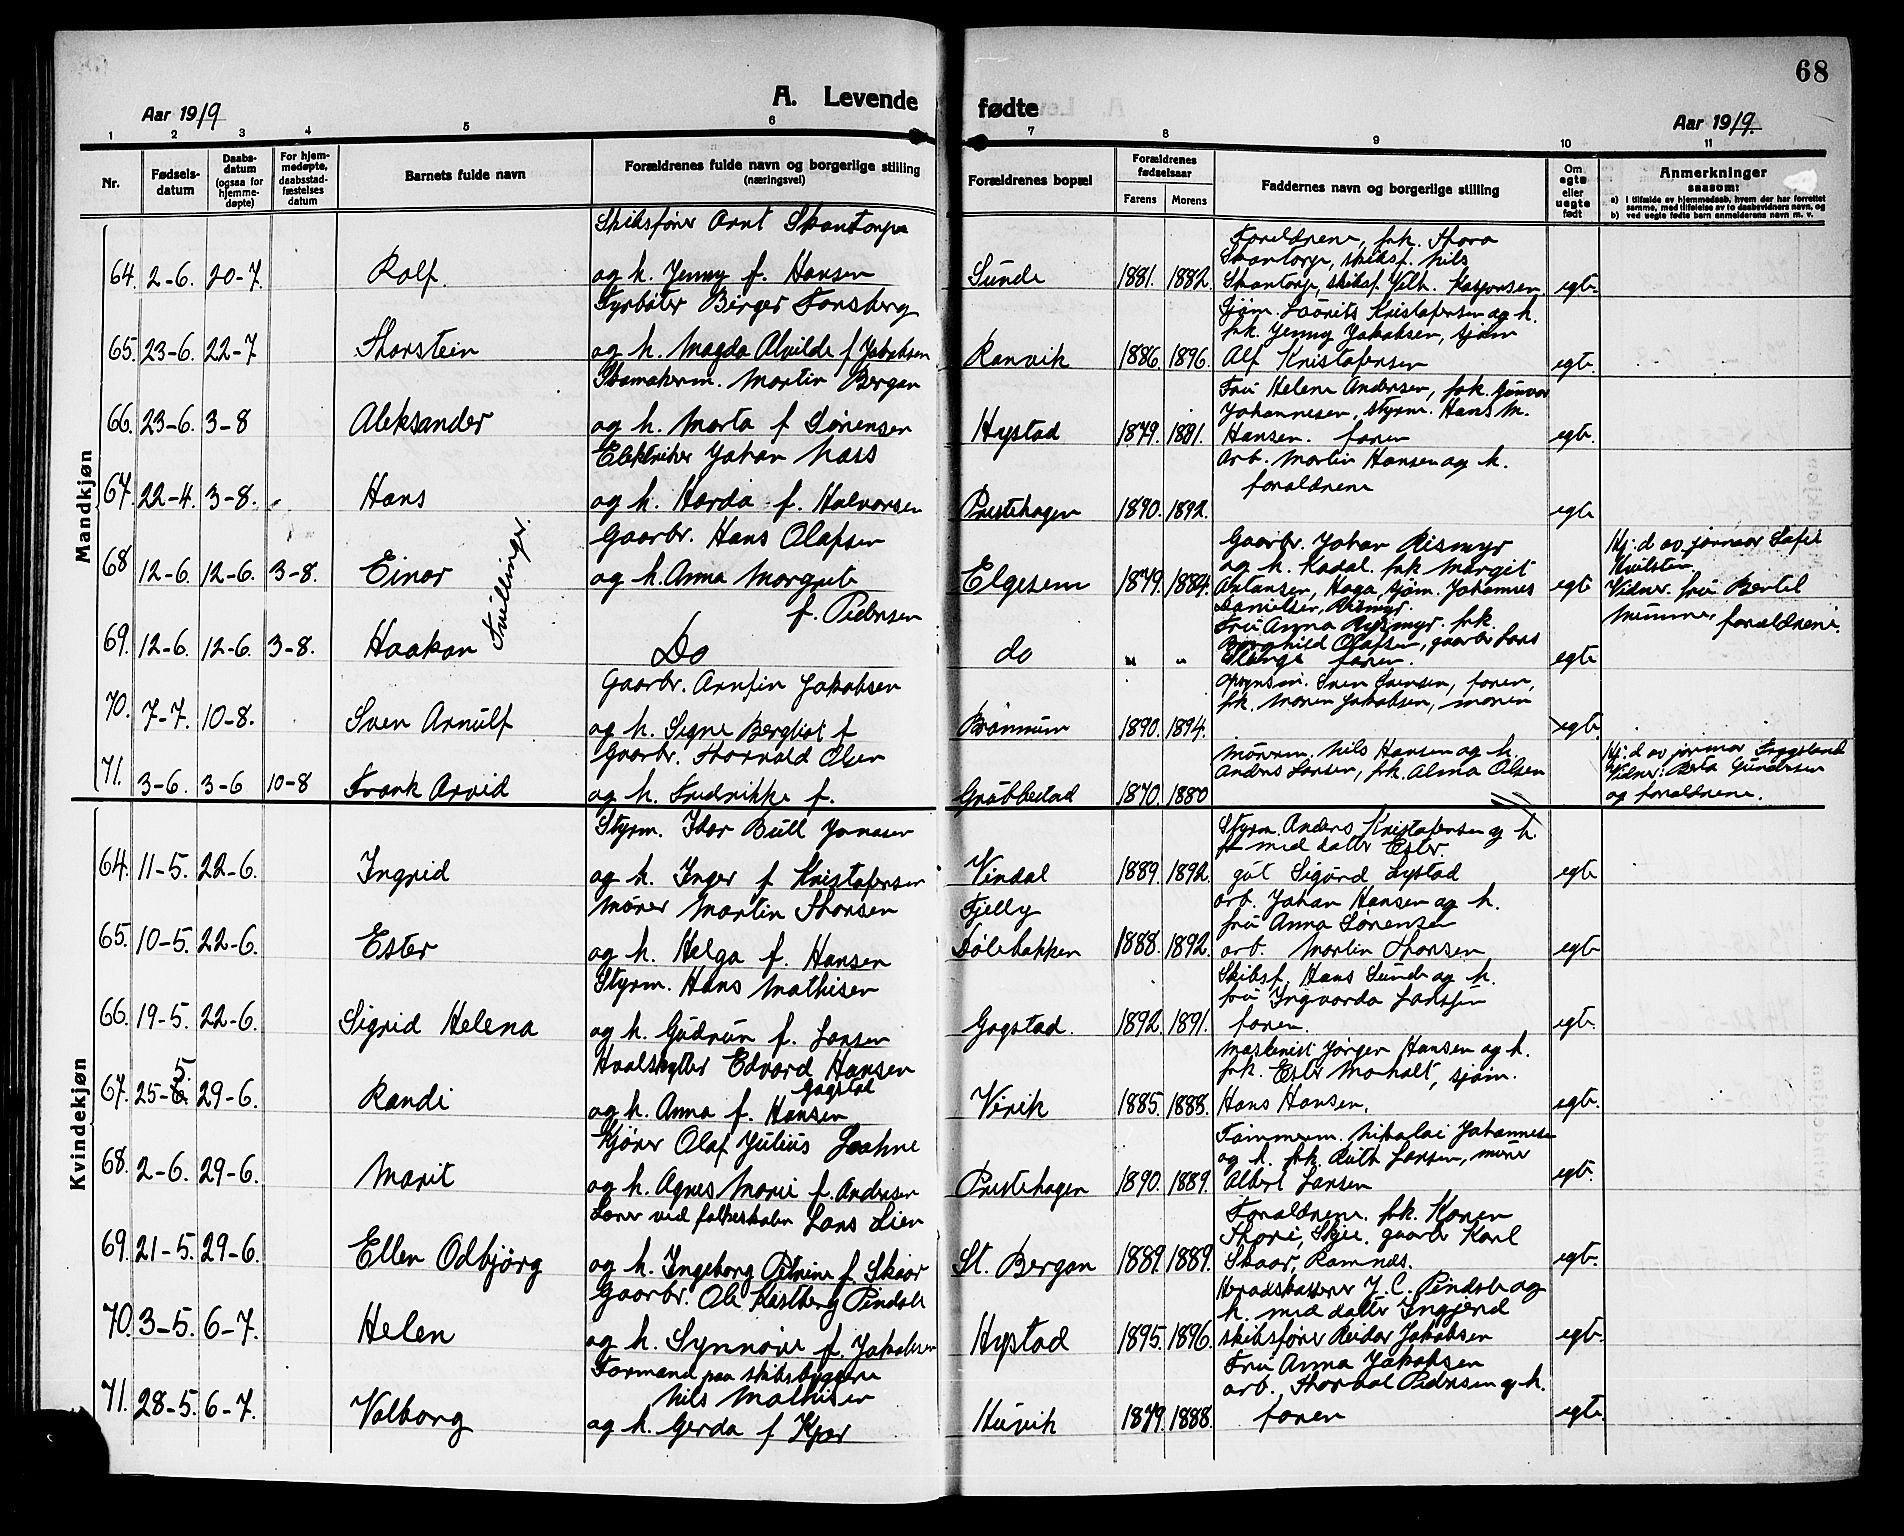 68
Aar 1919
A. Levende
fødte
Aar 1919.
1 2 3 4 5 6 7 8 9 10 11
Nr.
Fødsels-
datum
Daabs-
datum
(ogsaa for
hjemme-
døpte)
For hjem-
medøpte,
daabsstad-
fæstelses
datum
Barnets fulde navn
Forældrenes fulde navn og borgerlige stilling
(næringsvei)
Forældrenes bopæl
Forældrenes
fødselsaar
Farens
Morens
Faddernes navn og borgerlige stilling
Om
egte
eller
uegte
født
Anmerkninger
saasom:
a) i tilfælde av hjemmedaab, hvem der har forrettet
samme, med tilføielse av to daabsvidners navn, og
b) ved uegte fødte barn anmelderens navn m. v.
Mandkjøn
Skibsfører Arnt Skantorpe
64. 2-6. 20-7. Rolf og h. Jenny f. Hansen Sunde 1881. 1882. egte.
Forældrene, frk. Thora
Skantorp, skibsf. Nils
Skantorp, skibsf. Vilh.
Fyrbøter Birger Tonsberg
65. 23-6. 22-7 Thorstein og h. Magda Alvilde f Jakobsen Ranvik 1886. 1896. egte
Sjøm. Laurits Kristofersen og h.
frk. Jenny Jakobsen, sjøm
Alf Kristofersen
Martin Bergan
66. 23-6. 3-8 Aleksander og h. Marta f Sørensen Hystad 1879. 1881. egte.
Fru Helene Andersen, frk. Gunvor
Johannesen, styrm. Hans M.
Hansen. faren
Elektriker Johan Nass
67. 22-4. 3-8. Hans og h. Harda f. Halvorsen Prestehagen 1890. 1892. egte
Arb. Martin Hansen og h.
forældrene
Gaarbr. Hans Olafsen
68 12-6. 12-6. 3-8. Einar og h. Anna Margrete Elgesem 1879. 1884. egte
f. Pedersen
Tvillinger.
Gaarbr. Johan Rismyr
og h. frk Margit
Antonsen, Haga, sjøm. Johannes
Danielsen, Rismyr.
Hj: d av jormor
Vidner. fru Bertel
forældrene.
69. 12-6. 12-6. 3-8. Haakon Do do " " egte
Fru Anna Rismyr. frk.
Borghild Olafsen, gaarbr Lars
faren.
Gaarbr. Arnfin Jakobsen
70. 7-7. 10-8. Sven Arnulf og h. Signe Bergliot f Brønnum 1890. 1894. egte.
Sven Svensen, faren,
frk. Maren Jakobsen, moren
Gaarbr. Thorvald Olsen
71. 3-6. 3-6 10-8 Frank Arvid og h. Fredrikke f. Grubbestad 1870. 1880
Nils Hansen og h.
Anders Larsen, frk. Alma Olsen
Hj: d av jormor
Vidner: Berta Gundersen
og forældrene.
Kvindekjøn
Styrm. Idar Bull Jonassen
64. 11-5. 22-6. Ingrid og h. Inger f Kristofersen Vindal 1889. 1892. egte
Styrm. Anders Kristofersen og h.
med datter Ester.
gut Sigurd Lystad
Murer Martin Thorsen
Fjelly
65. 10-5. 22-6. Ester og h. Helga f. Hansen Dølebakken 1888. 1892. egte
arb. Johan Hansen og h.
fru Anna Sørensen
arb. Martin Thorsen
Styrm. Hans Mathisen
66. 19-5. 22-6. Sigrid Helena og h. Gudrun f. Larsen Gogstad. 1892. 1891. egte.
Skibsf. Hans Sunde og h.
fru Ingvarda Larssen
faren.
Hvalskytter Edvard Hansen
67. 25-5. 29-6. Randi og h. Anna f. Hansen Virik 1885. 1888. egte.
Gogstad
Maskinist Jørgen Hansen og h.
frk. Ester Moholt, sjøm.
Hans Hansen.
Kjører Olaf Julius
68. 2-6. 29-6. Marit og h. Agnes Marie f. Andersen Prestehagen 1890. 1889. egte.
Tømmerm. Nikolai Johannesen
og h. frk. Ruth Larsen, murer
Albert Larsen
Lærer ved folkeskolen Lars Lien
69. 21-5. 29-6. Ellen Odbjørg og h. Ingeborg Petrine f. Skaar St. Bergan 1889. 1889. egte.
Forældrene. frk. Karen
gaarbr Karl
Skaar, Ramnæs.
Gaarbr. Ole Kastberg Pindsle
70. 3-5. 6-7. Helen og h. Synnøve f. Jakobsen Hystad 1895. 1896. egte.
Heradskasserer J. C. Pindsle og
h. med datter Ingjerd
skibsfører Reidar Jakobsen
Formand paa skibsbyggeri
Nils Mathisen
71. 28-5. 6-7. Valborg og h. Gerda f Kjær Huvik 1879. 1888. egte.
Fru Anna Jakobsen
arb. Thorval Pedersen og h.
faren